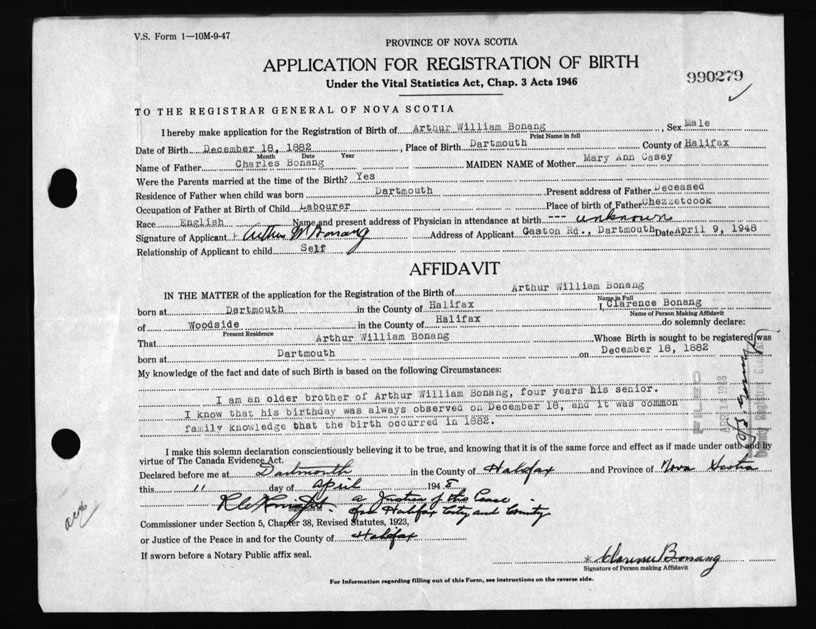 V.S. Form 1—10M-9-47
PROVINCE OF NOVA SCOTIA
APPLICATION FOR REGISTRATION OF BIRTH
Under the Vital Statistics Act, Chap. 3 Acts 1946
990279
TO THE REGISTRAR GENERAL OF NOVA SCOTIA
I hereby make application for the Registration of Birth of Arthur William Bonang, Sex Male
Print Name in full
Date of Birth December 18, 1882, Place of Birth Dartmouth County of Halifax
Month Date Year
Name of Father Charles Bonang MAIDEN NAME of Mother Mary Ann Casey
Were the Parents married at the time of the Birth? Yes
Residence of Father when child was born Dartmouth Present address of Father Deceased
Occupation of Father at Birth of Child Labourer Place of birth of Father Chezzetcook
Race English Name and present address of Physician in attendance at birth --- unknown
Signature of Applicant Arthur W Bonang Address of Applicant Gaston Rd., Dartmouth Date April 9, 1948
Relationship of Applicant to child Self
AFFIDAVIT
IN THE MATTER of the application for the Registration of the Birth of Arthur William Bonang
Name in Full
born at Dartmouth in the County of Halifax I, Clarence Bonang
Name of Person Making Affidavit
of Woodside in the County of Halifax do solemnly declare:
Present Residence
That Arthur William Bonang Whose Birth is sought to be registered was
born at Dartmouth on December 18, 1882
My knowledge of the fact and date of such Birth is based on the following Circumstances:
I am an older brother of Arthur William Bonang, four years his senior.
I know that his birthday was always observed on December 18, and it was common
family knowledge that the birth occurred in 1882.
FILED
I make this solemn declaration conscientiously believing it to be true, and knowing that it is of the same force and effect as if made under oath and by
virtue of The Canada Evidence Act.
Declared before me at Dartmouth in the County of Halifax and Province of Nova Scotia
this 11 day of April 1948
a Justice of the Peace
for Halifax City and County
Commissioner under Section 5, Chapter 38, Revised Statutes, 1923,
or Justice of the Peace in and for the County of Halifax
If sworn before a Notary Public affix seal.
x Clarence Bonang
Signature of Person making Affidavit
For Information regarding filling out of this Form, see instructions on the reverse side.